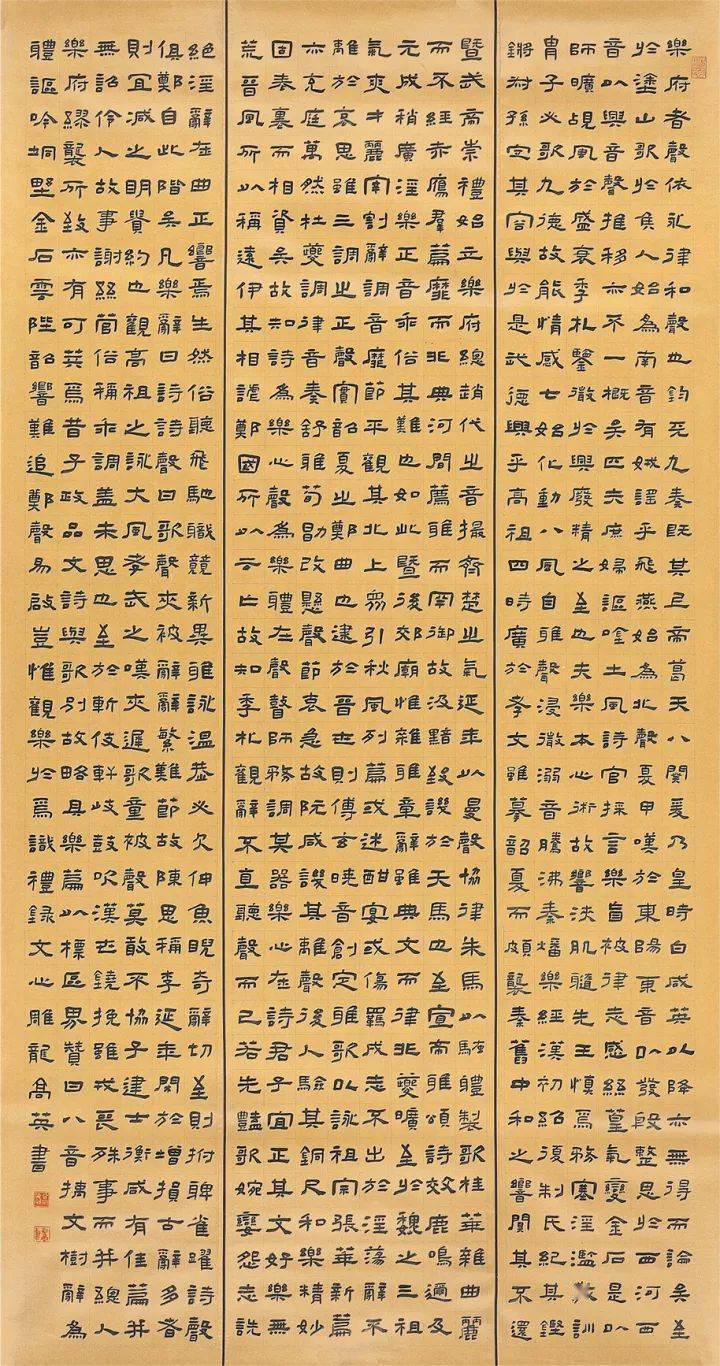 樂府者聲依永律和聲也鈞天九奏既其上帝葛天八闋爰乃皇時自咸英以降亦無得而論矣至
於塗山歌於候人始為南音有娀謠乎飛燕始為北聲夏甲嘆於東陽東音以發殷整思於西河西
音以興音聲推移亦不一概矣匹夫庶婦謳唫土風詩官採言樂盲被律志感絲篁氣變金石是以
師曠覘風於盛衰季札鑒微於興廢精之至也夫樂本心術故響浹肌髓先王慎焉務塞淫濫敷訓
胄子必歌九德故能情感七始化動八風自雅聲浸微溺音騰沸秦燔樂經漢初紹復制氏紀其鏗
鏘叔孫定其容與於是武德興乎高祖四時廣於孝文雖摹韶夏而頗襲秦舊中和之響闃其不還
暨武帝崇禮始立樂府總趙代之音撮齊楚之氣延年以曼聲協律朱馬以騷體製歌桂華雜曲麗
而不經赤鴈羣篇靡而非典河間薦雅而罕御故汲黯致譏於天馬也至宣帝雅頌詩效鹿鳴邇及
元成稍廣淫樂正音乖俗其難也如此暨後郊廟惟雜雅章辭雖典文而律非夔曠至於魏之三祖
氣爽才麗宰割辭調音靡節平觀其北上眾引秋風列篇或述酣宴或傷羈戍志不出於淫蕩辭不
離於哀思雖三調之正聲實韶夏之鄭曲也逮於晉世則傅玄曉音創定雅歌以詠祖宗張華新篇
亦充庭萬然杜夔調律音奏舒雅荀勖改懸聲節哀急故阮咸譏其離聲後人驗其銅尺和樂精妙
固表裏而相資矣故知詩為樂心聲為樂體在聲瞽師務調其器樂心在詩君子宜正其文好樂無
荒晉風所以稱遠伊其相謔鄭國所以云亡故知季札觀辭不直聽聲而已若夫豔歌婉孌怨志詄
絕淫辭在曲正響焉生然俗聽飛馳職競新異雅詠溫恭必欠伸魚睨奇辭切至則拊髀雀躍詩聲
俱鄭自此階矣凡樂辭曰詩詩聲曰歌聲來被辭辭繁難節故陳思稱李延年閑於增損古辭多者
則宜減之明貴約也觀高祖之詠大風孝武之嘆來遲歌童被聲莫敢不協子建士衡咸有佳篇并
無詔伶人故事謝絲管俗稱乖調蓋未思也至於斬伎軒岐鼓吹漢世鐃挽雖戎喪殊事而并總入
樂府繆襲所致亦有可英焉昔子政品文詩與歌別故略具樂篇以標區界贊曰八音摛文樹辭為
體謳吟坰野金石雲陛韶響難追鄭聲易啟豈惟觀樂於焉識禮錄文心雕龍高英書